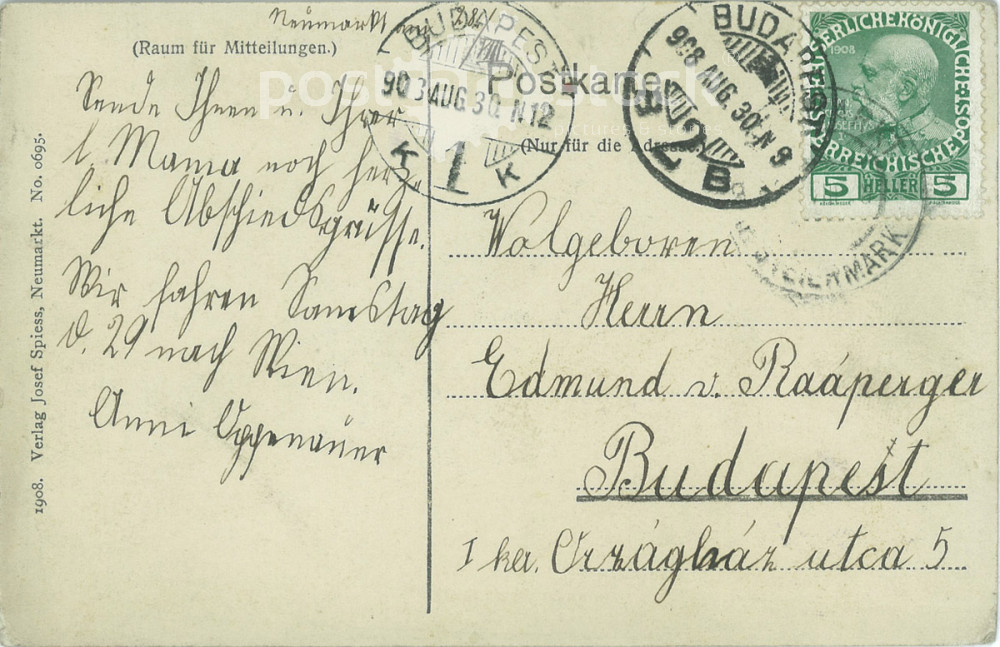 Neumarkt
(Raum für Mitteilungen.)
Sende Ihnen u. Ihrer
l. Mama noch herz-
liche Abschiedsgrüsse.
Wir fahren Samstag
d. 29 nach Wien.
Anni Oppenauer
1908. Verlag Josef Spiess, Neumarkt. No. 0695.
Postkarte
(Nur für die Adresse.)
BUDAPEST
908 AUG. 30. N 12
K 1 K
BUDAPEST
908 AUG. 30. N 9
B
KAISERLICHEKÖNIGLICHEÖSTERREICHISCHEPOST
1908
5 HELLER 5
STEIERMARK
Wolgeboren
Herrn
Edmund v. Raáperger
Budapest
I ker. Országház utca 5